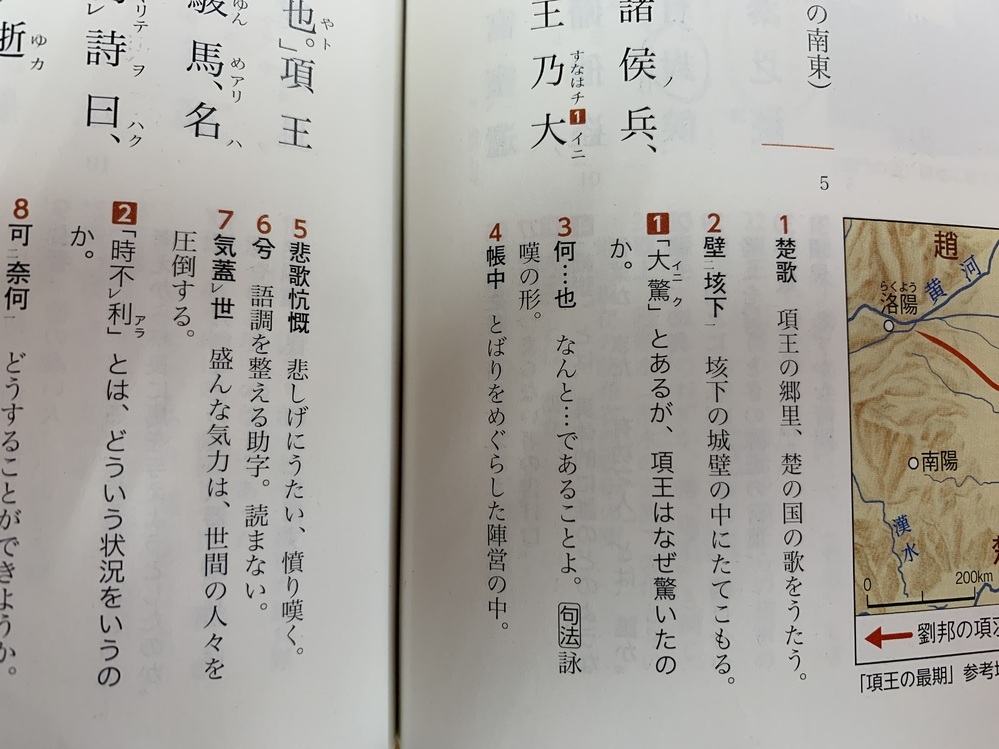 の南東)
5
諸侯ノ兵、
王乃すなはチ1大イニ
也やト。」項王
駿馬、めアリ名ハ
詩ヲ曰ハク、
逝ゆカ
趙
黄河
らくよう
洛陽
南陽
漢水
0 200km
劉邦の項
「項王の最期」参考
1 楚歌 項王の郷里、楚の国の歌をうたう。
2 壁二垓下一 垓下の城壁の中にたてこもる。
1 「大イニ驚ク」とあるが、項王はなぜ驚いたの
か。
3 何…也 なんと…であることよ。句法詠
嘆の形。
4 帳中 とばりをめぐらした陣営の中。
5 悲歌忼慨 悲しげにうたい、憤り嘆く。
6 兮 語調を整える助字。読まない。
7 気蓋レ世 盛んな気力は、世間の人々を
圧倒する。
2 「時不レ利アラ」とは、どういう状況をいうの
か。
8 可二奈何一 どうすることができようか。